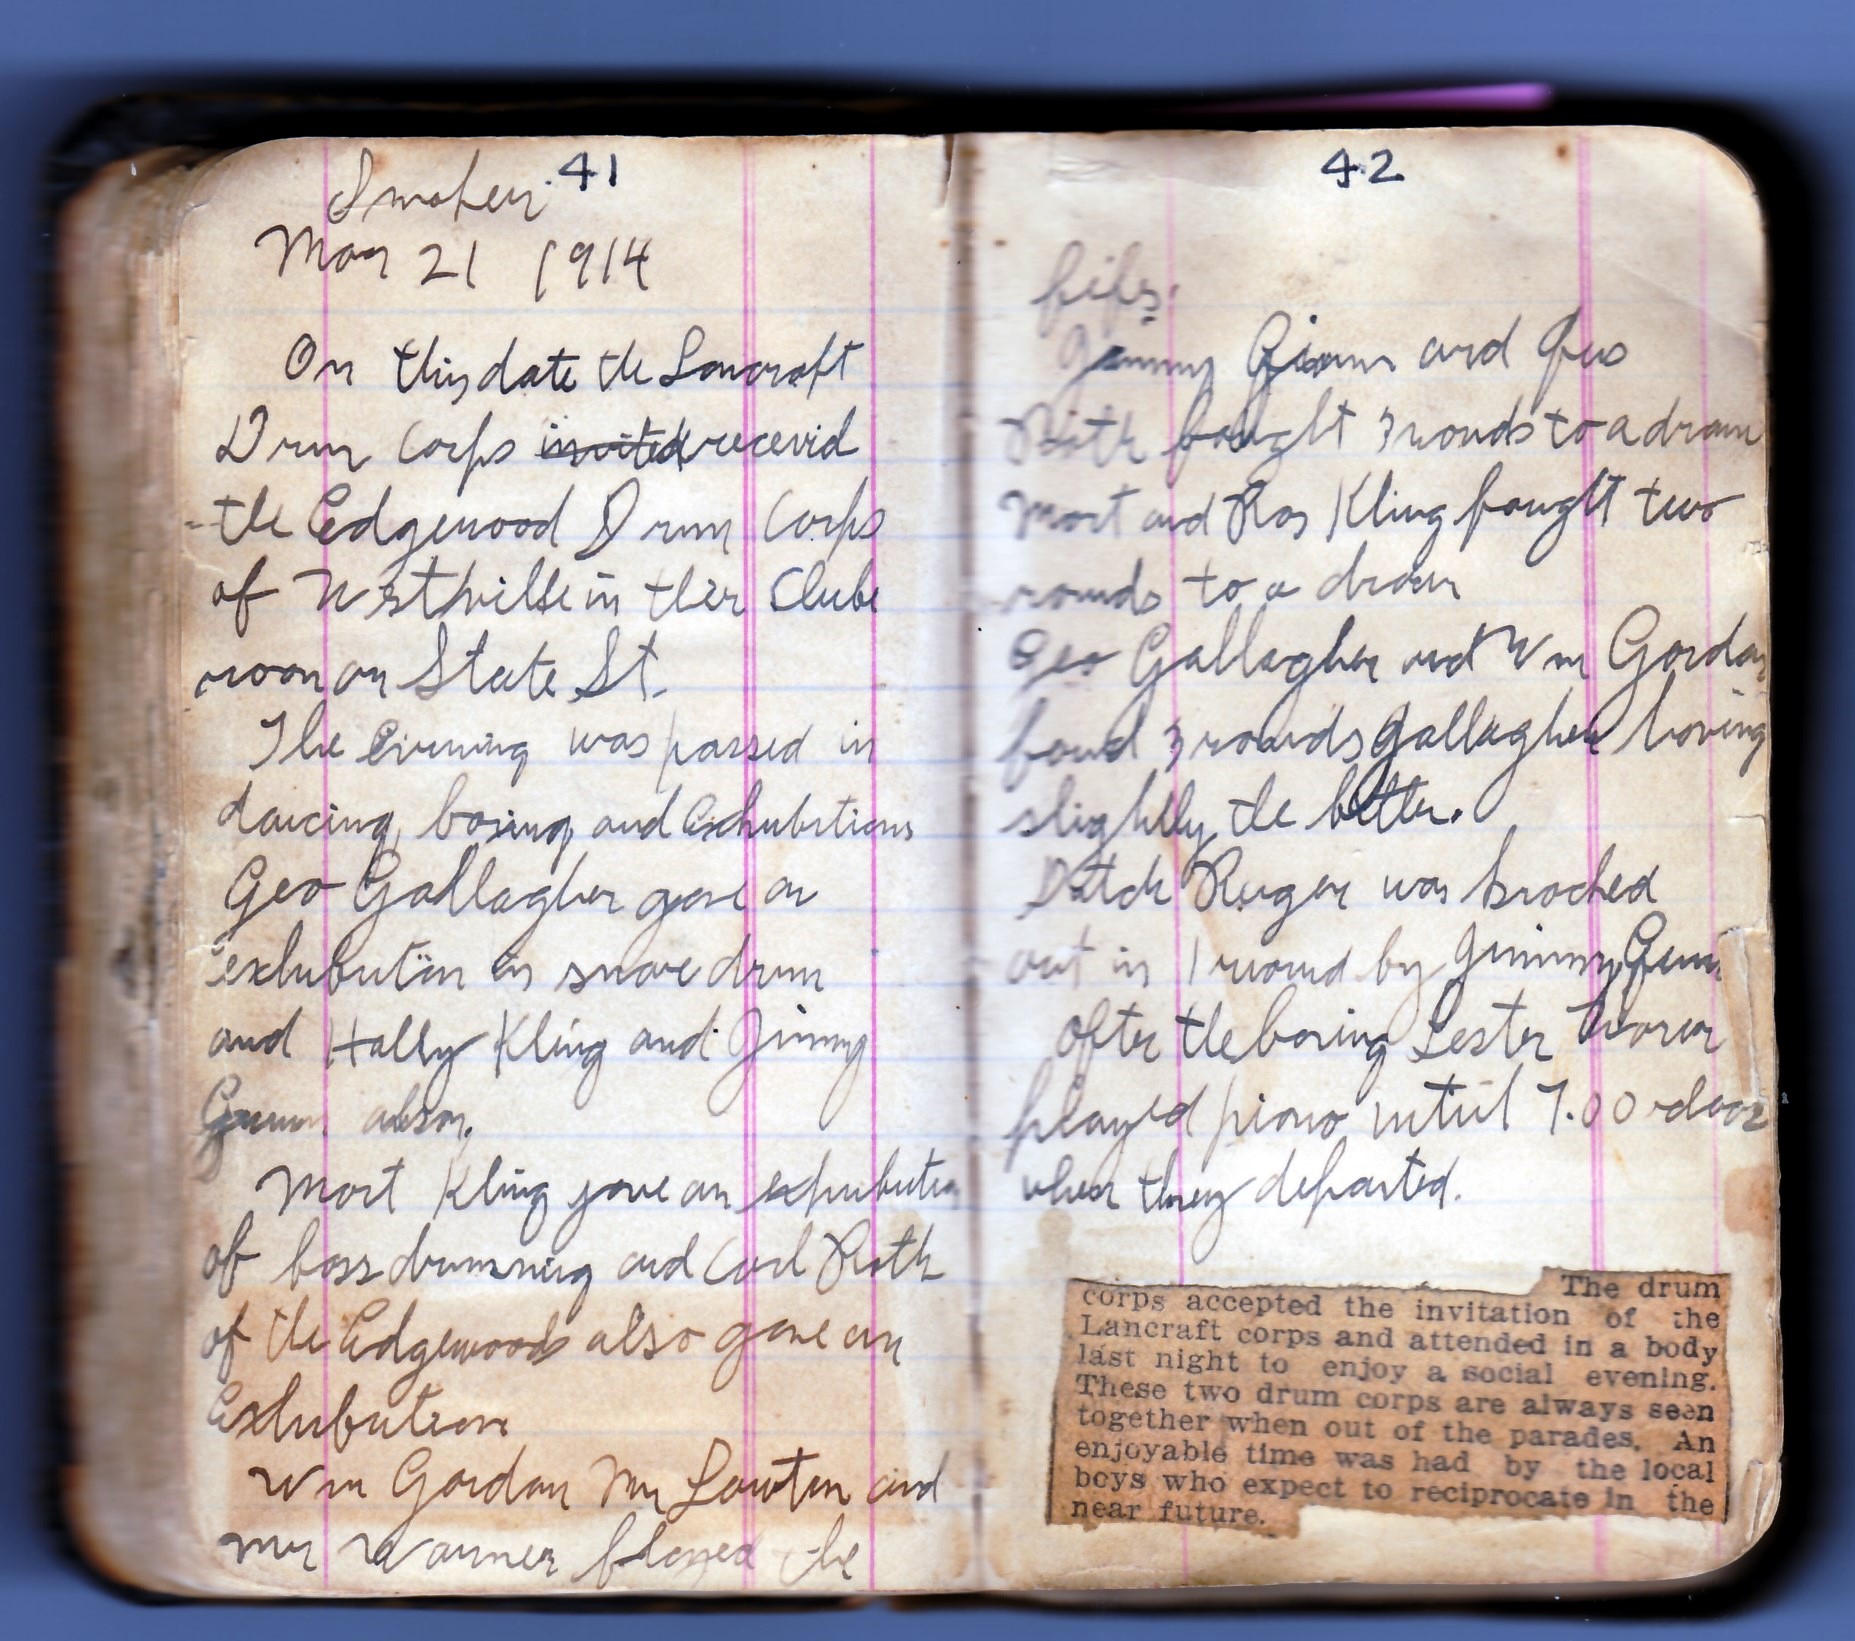 41
Smoker
Mar 21 1914
On this date the Lancraft
Drum Corps invited recevid
the Edgewood Drum Corps
of Westville in their Clube
room on State St.
The evening was passed in
dancing, boxing and exhubitions
Geo Gallagher gave an
exhubition in snare drum
and Hally Kling and Jimmy
Gunn also.
Mort Kling gave an exhubition
of bass drumming and Carl Roth
of the Edgewoods also gave an
Exhubition
Wm Gordon Mr Lawton and
mr Warner played the
42
fifes.
Jimmy Gunn and Gus
Roth bought 3 rounds to a draw
Mort and Ros Kling fought two
rounds to a draw
Geo Gallagher and Wm Gordon
boud 3 rounds Gallagher having
slightly the better.
Dutch Ruger was knocked
out in 1 round by Jimmy Gunn
after the boxing Lester
played piano until 7.00
when they departed.
The drum
corps accepted the invitation of the
Lancraft corps and attended in a body
last night to enjoy a social evening.
These two drum corps are always seen
together when out of the parades. An
enjoyable time was had by the local
boys who expect to reciprocate in the
near future.